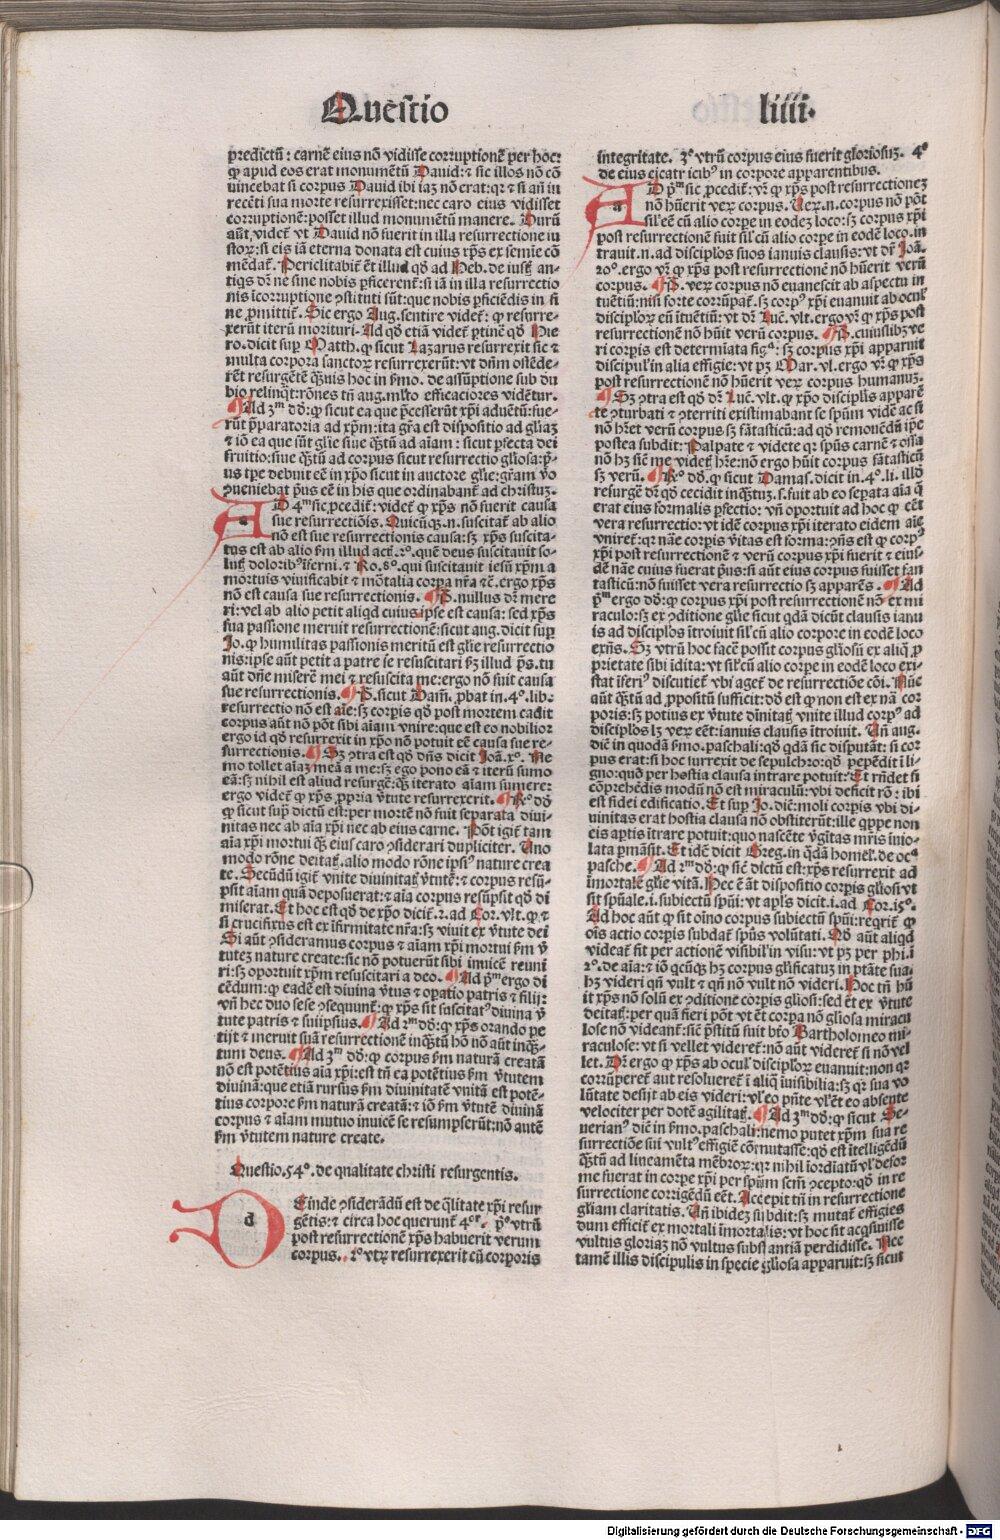 Questio liiii.
predictū: carnē eius nō vidisse corruptionē per hoc:
ꝙ apud eos erat monumētū Dauid: ⁊ sic illos nō cō
uincebat si corpus Dauid ibi iaꝫ nō erat: qꝛ ⁊ si añ iu
recēti sua morte resurrexisset: nec caro eius vidisset
corruptionē: posset illud monumētū manere. Durū
aūt, videt̄ vt Dauid nō fuerit in illa resurrectione iu
stoꝝ: si eis iā eterna donata est cuius xp̄s ex semīe cō
mēdat̄. Periclitabit̄ ēt illud qḋ ad Heb. de iustꝭ an-
tiqs dr̄ ne sine nobis ꝑficerent̄: si iā in illa resurrectio
nis īcorruptione ꝯstituti sūt: que nobis ꝑficiēdis in fi
ne ꝓmittit̄. Sic ergo Aug. sentire videt̄: ꝙ resurre-
xerūt iterū morituri. Ad qḋ etiā videt̄ ꝑtinē qḋ Hie
ro. dicit suꝑ Matth. ꝙ sicut Lazarus resurrexit sic ⁊
multa corpora sanctoꝝ resurrexerūt: vt dn̄m ostēde-
rēt resurgētē qꝫuis hoc in ẜmo. de assūptione sub du
bio relinqt̄. rōnes tn̄ aug. ml̄to efficaciores vidētur.
¶ Ad 3ᵐ dḋ: ꝙ sicut ea que p̄cesserūt xp̄i aduētū: fue-
rūt p̄paratoria ad xp̄m: ita gr̄a est dispositio ad gl̄iaꝫ
⁊ iō ea que sūt gl̄ie siue qꝫtū ad aīam: sicut ꝑfecta dei
fruitio: siue qꝫtū ad corpus sicut resurrectio gl̄iosa: p̄-
us tꝑe debuit eē in xp̄o sicut in auctore gl̄ie: gr̄am vo
ꝯueniebat p̄us eē in his que ordinabant̄ ad christuꝫ.
AD 4ᵐ sic ꝓcedit̄: videt̄ ꝙ xp̄s nō fuerit causa
sue resurrectiōis. Quicūqꝫ. n. suscitat̄ ab alio
nō est sue resurrectionis causa: sꝫ xp̄s suscita-
tus est ab alio ẜm illud act̄. 2º. quē deus suscitauit so-
lutꝭ doloribꝰ īferni. ⁊ Ro. 8º. qui suscitauit iesū xp̄m a
mortuis viuificabit ⁊ mōtalia corpa nr̄a ⁊c̄. ergo xp̄s
nō est causa sue resurrectionis. ¶ P. nullus dr̄ mere
ri: vel ab alio petit aliqd cuius ipse est causa: sed xp̄s
sua passione meruit resurrectionē: sicut aug. dicit suꝑ
Jo. ꝙ humilitas passionis meritū est gl̄ie resurrectio
nis: ipse aūt petit a patre se resuscitari ẜꝫ illud ps. tu
aūt dn̄e miserē mei ⁊ resuscita me: ergo nō fuit causa
sue resurrectionis. ¶ P. sicut Dam̄. ꝓbat in. 4º. lib:
resurrectio nō est aīe: sꝫ corpis qḋ post mortem cadit
corpus aūt nō pōt sibi aīam vnire: que est eo nobilior
ergo id qḋ resurrexit in xp̄o nō potuit eē causa sue re-
surrectionis. ¶ Sꝫ ꝯtra est qḋ dn̄s dicit Joā. xº. Ne
mo tollet aīaꝫ meā a me: sꝫ ego pono eā ⁊ iterū sumo
eā: sꝫ nihil est aliud resurgē: qꝫ iterato aīam sumere:
ergo videt̄ ꝙ xp̄s ꝓpria v̄tute resurrexerit. ¶ Rº. dḋ
ꝙ sicut suꝑ dictū est: per mortē nō fuit separata diui-
nitas nec ab aīa xp̄i nec ab eius carne. Pōt igit̄ tam
aīa xp̄i mortui qꝫ eius caro ꝯsiderari dupliciter. Uno
modo rōne deitatꝭ. alio modo rōne ipsiꝰ nature crea
te. Secūdū igit̄ vnite diuinitatꝭ v̄tutē: ⁊ corpus resū-
psit aīam quā deposuerat: ⁊ aīa corpus resūpsit qḋ di
miserat. Et hoc est qḋ de xp̄o dicit̄. 2. ad Cor. vlt. ꝙ ⁊
si crucifixus est ex īfirmitate nr̄a: sꝫ viuit ex v̄tute dei
Si aūt ꝯsideramus corpus ⁊ aīam xp̄i mortui ẜm v̄
tuteꝫ nature create: sic nō potuerūt sibi inuicē reuni
ri: sꝫ oportuit xp̄m resuscitari a deo. ¶ Ad p̄ᵐ ergo di
cēdum: ꝙ eadē est diuina v̄tus ⁊ opatio patris ⁊ filij:
vn̄ hec duo sese ꝯsequunt̄: ꝙ xp̄s sit suscitatꝰ diuina v̄
tute patris ⁊ suiipsius. ¶ Ad 2ᵐ dḋ: ꝙ xp̄s orando pe
tijt ⁊ meruit suā resurrectionē inqꝫtū hō nō aūt inqꝫ-
tum deus. ¶ Ad 3ᵐ dḋ: ꝙ corpus ẜm naturā creatā
nō est potētius aīa xp̄i: est tn̄ ea potētius ẜm v̄tutem
diuinā: que etiā rursus ẜm diuinitatē vnitā est potē-
tius corpore ẜm naturā creatā: ⁊ iō ẜm v̄tutē diuinā
corpus ⁊ aīam mutuo inuicē se resumpserūt: nō autē
ẜm v̄tutem nature create.
Questio. 54º. de qualitate christi resurgentis.
d
Einde ꝯsiderādū est de q̄litate xp̄i resur
gētis: ⁊ circa hoc querunt̄ 4ºʳ. p̄º vtrū
post resurrectionē xp̄s habuerit verum
corpus. 2º vtꝝ resurrexerit cū corporis
integritate. 3º vtrū corpus eius fuerit gloriosuꝫ. 4º
de eius cicatricibꝰ in corpore apparentibus.
AD p̄ᵐ sic ꝓcedit̄: vr̄ ꝙ xp̄s post resurrectioneꝫ
nō hūerit veꝝ corpus. Ueꝝ. n. corpus nō pōt
sil̄ eē cū alio corpe in eodeꝫ loco: sꝫ corpus xp̄i
post resurrectionē fuit sil̄ cū alio corpe in eodē loco. in
trauit. n. ad discipl̄os suos ianuis clausis: vt dr̄ Joā.
20º. ergo vr̄ ꝙ xp̄s post resurrectionē nō hūerit verū
corpus. ¶ P. veꝝ corpus nō euanescit ab aspectu in
tuētiū: nisi forte corrūpat̄. sꝫ corpꝰ xp̄i euanuit ab oculꝭ
discipl̄oꝝ eū ītuētiū: vt dr̄ Luc̄. vlt. ergo vr̄ ꝙ xp̄s post
resurrectionē nō hūit verū corpus. ¶ P. cuiuslibꝫ ve
ri corpis est determīata figᵃ: sꝫ corpus xp̄i apparuit
discipul̄ in alia effigie: vt pꝫ Mar. vl. ergo vr̄ ꝙ xp̄s
post resurrectionē nō hūerit veꝝ corpus humanuꝫ.
¶ Sꝫ ꝯtra est qḋ dr̄ Luc̄. vlt. ꝙ xp̄o discipl̄is apparē
te ꝯturbati ⁊ ꝯterriti existimabant se spūm vidē ac si
nō hr̄et verū corpus sꝫ fātasticū: ad qḋ remouēdū ip̄e
postea subdit: Palpate ⁊ videte qꝛ spūs carnē ⁊ ossa
nō hꝫ sic me videtꝭ hr̄e: nō ergo hūit corpus fātasticū
sꝫ verū. ¶ Rº. dḋ. ꝙ sicut Damas. dicit in. 4º. li. illḋ
resurgē dr̄ qḋ cecidit inqꝫtuꝫ. s. fuit ab eo sepata aīa q̄
erat eius formalis ꝑfectio: vn̄ oportuit ad hoc ꝙ eēt
vera resurrectio: vt idē corpus xp̄i iterato eidem aīe
vniret̄: qꝛ nāe corpis v̄itas est forma: ꝯn̄s est ꝙ corpꝰ
xp̄i post resurrectionē ⁊ verū corpus xp̄i fuerit ⁊ eius-
dē nāe cuius fuerat p̄us: si aūt eius corpus fuisset fan
tasticū: nō fuisset vera resurrectio sꝫ apparēs. ¶ Ad
p̄ᵐ ergo dḋ: ꝙ corpus xp̄i post resurrectionē nō ex mi
raculo: sꝫ ex ꝯditione gl̄ie sicut qdā dicūt clausis ianu
is ad discipl̄os ītroiuit sil̄ cū alio corpore in eodē loco
exn̄s. Sꝫ vtrū hoc facē possit corpus gl̄iosū ex aliq̄ ꝓ
prietate sibi īdita: vt sil̄ cū alio corpe in eodē loco exi-
stat īferiꝰ discutiet̄ vbi aget̄ de resurrectiōe cōi. Nūc
aūt qꝫtū ad ꝓpositū sufficit: dḋ est ꝙ non est ex nā cor
poris: sꝫ potius ex v̄tute dīnitatꝭ vnite illud corpꝰ ad
discipl̄os lꝫ veꝝ eēt: ianuis clausis ītroiuit. Un̄ aug.
dic̄ in quodā ẜmo. paschali: qḋ qdā sic disputāt: si cor
pus erat: si hoc surrexit de sepulchro: qḋ pepēdit ī li-
gno: quō per hostia clausa intrare potuit: Et rn̄det si
cōp̄rehēdis modū nō est miraculū: vbi deficit rō: ibi
est fidei edificatio. Et suꝑ Jo. dic̄: moli corpis vbi di-
uinitas erat hostia clausa nō obstiterūt: ille qꝑpe non
eis aptis ītrare potuit: quo nascēte v̄gītas mr̄is inuio-
lata pmāsit. Et idē dicit Greg. in q̄dā homel̄. de ocᵃ
pasche. ¶ Ad 2ᵐ dḋ: ꝙ sic dictū est: xp̄s resurrexit ad
īmortalē gl̄ie vitā. Hec ē āt dispositio corpis gl̄iosi vt
sit spūale. i. subiectū spūi: vt apl̄s dicit. i. ad Cor. 15º.
Ad hoc aūt ꝙ sit oīno corpus subiectū spūi: reqrit̄ ꝙ
oīs actio corpis subdat̄ spūs volūtati. Qḋ aūt aliqd
videat̄ fit per actionē visibilꝭ in visu: vt pꝫ per phi. i
2º. de aīa: ⁊ iō qcūqꝫ hꝫ corpus gl̄ificatuꝫ in ptāte sua
hꝫ videri qn̄ vult ⁊ qn̄ nō vult nō videri. Hoc tn̄ hū
it xp̄s nō solū ex ꝯditione corpis gl̄iosi: sed ēt ex v̄tute
deitatꝭ: per quā fieri pōt vt ēt corpa nō gl̄iosa miracu
lose nō videant̄: sic p̄stitū fuit bt̄o Bartholomeo mi-
raculose: vt si vellet videret̄: nō aūt videret̄ si nō vel
let. Dr̄ ergo ꝙ xp̄s ab oculꝭ discipl̄oꝝ euanuit: non qꝛ
corrūperet̄ aut resolueret̄ ī aliq̄ īuisibilia: sꝫ qꝛ sua vo
lūtate desijt ab eis videri: vl̄ eo pn̄te vl̄ ēt eo absente
velociter per dotē agilitatꝭ. ¶ Ad 3ᵐ dḋ: ꝙ sicut Se-
uerianꝰ dic̄ in ẜmo. paschali: nemo putet xp̄m sua re
surrectiōe sui vultꝰ effigiē cōmutasse: qḋ est ītelligēdū
qꝫtū ad lineamēta mēbroꝝ: qꝛ nihil īordiatū vl̄ defor
me fuerat in corpe xp̄i per spūm scm̄ ꝯcepto: qḋ in re
surrectione corrigēdū eēt. Accepit tn̄ in resurrectione
gl̄iam claritatis. Un̄ ibideꝫ subdit: sꝫ mutat̄ effigies
dum efficit̄ ex mortali īmortalis: vt hoc sit acqsiuisse
vultus gloriaꝫ nō vultus substantiā perdidisse. Nec
tamē illis discipulis in specie gl̄iosa apparuit: sꝫ sicut
Digitalisierung gefördert durch die Deutsche Forschungsgemeinschaft - DFG